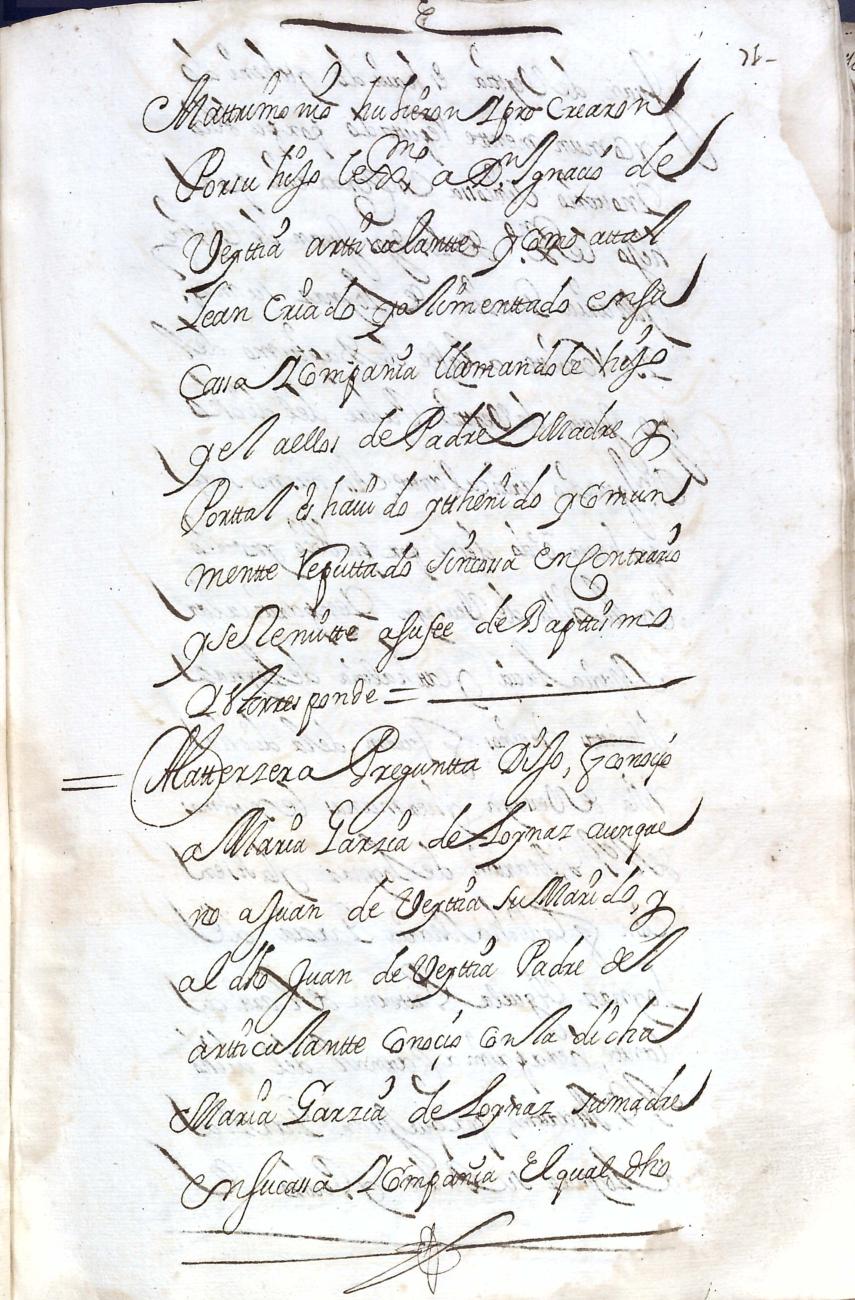 71-
Mattrimonio hubieron y procrearon
Por su hijo lexmo a Dn Ignacio de
Verttiz artticulantte y como a ttal
lean Criado y alimenttado en su
Cassa y Compañia llamandole hijo
y el a ellos de Padre y Madre y
Por ttal es havido y tthenido y Comun
mentte Reputtado sin cossa en Contrario
y se Remitte a su fee de Bapttismo
y Responde =
= A la tterzera Preguntta Dijo, q conoçio
a Maria Garzia de Loynaz aunque
no a Juan de Verttiz su Marido, y
al dho Juan de Verttiz Padre del
artticulantte Conoçio con la dicha
Maria Garzia de Loynaz su madre
en su cassa y Compañia el qual dho